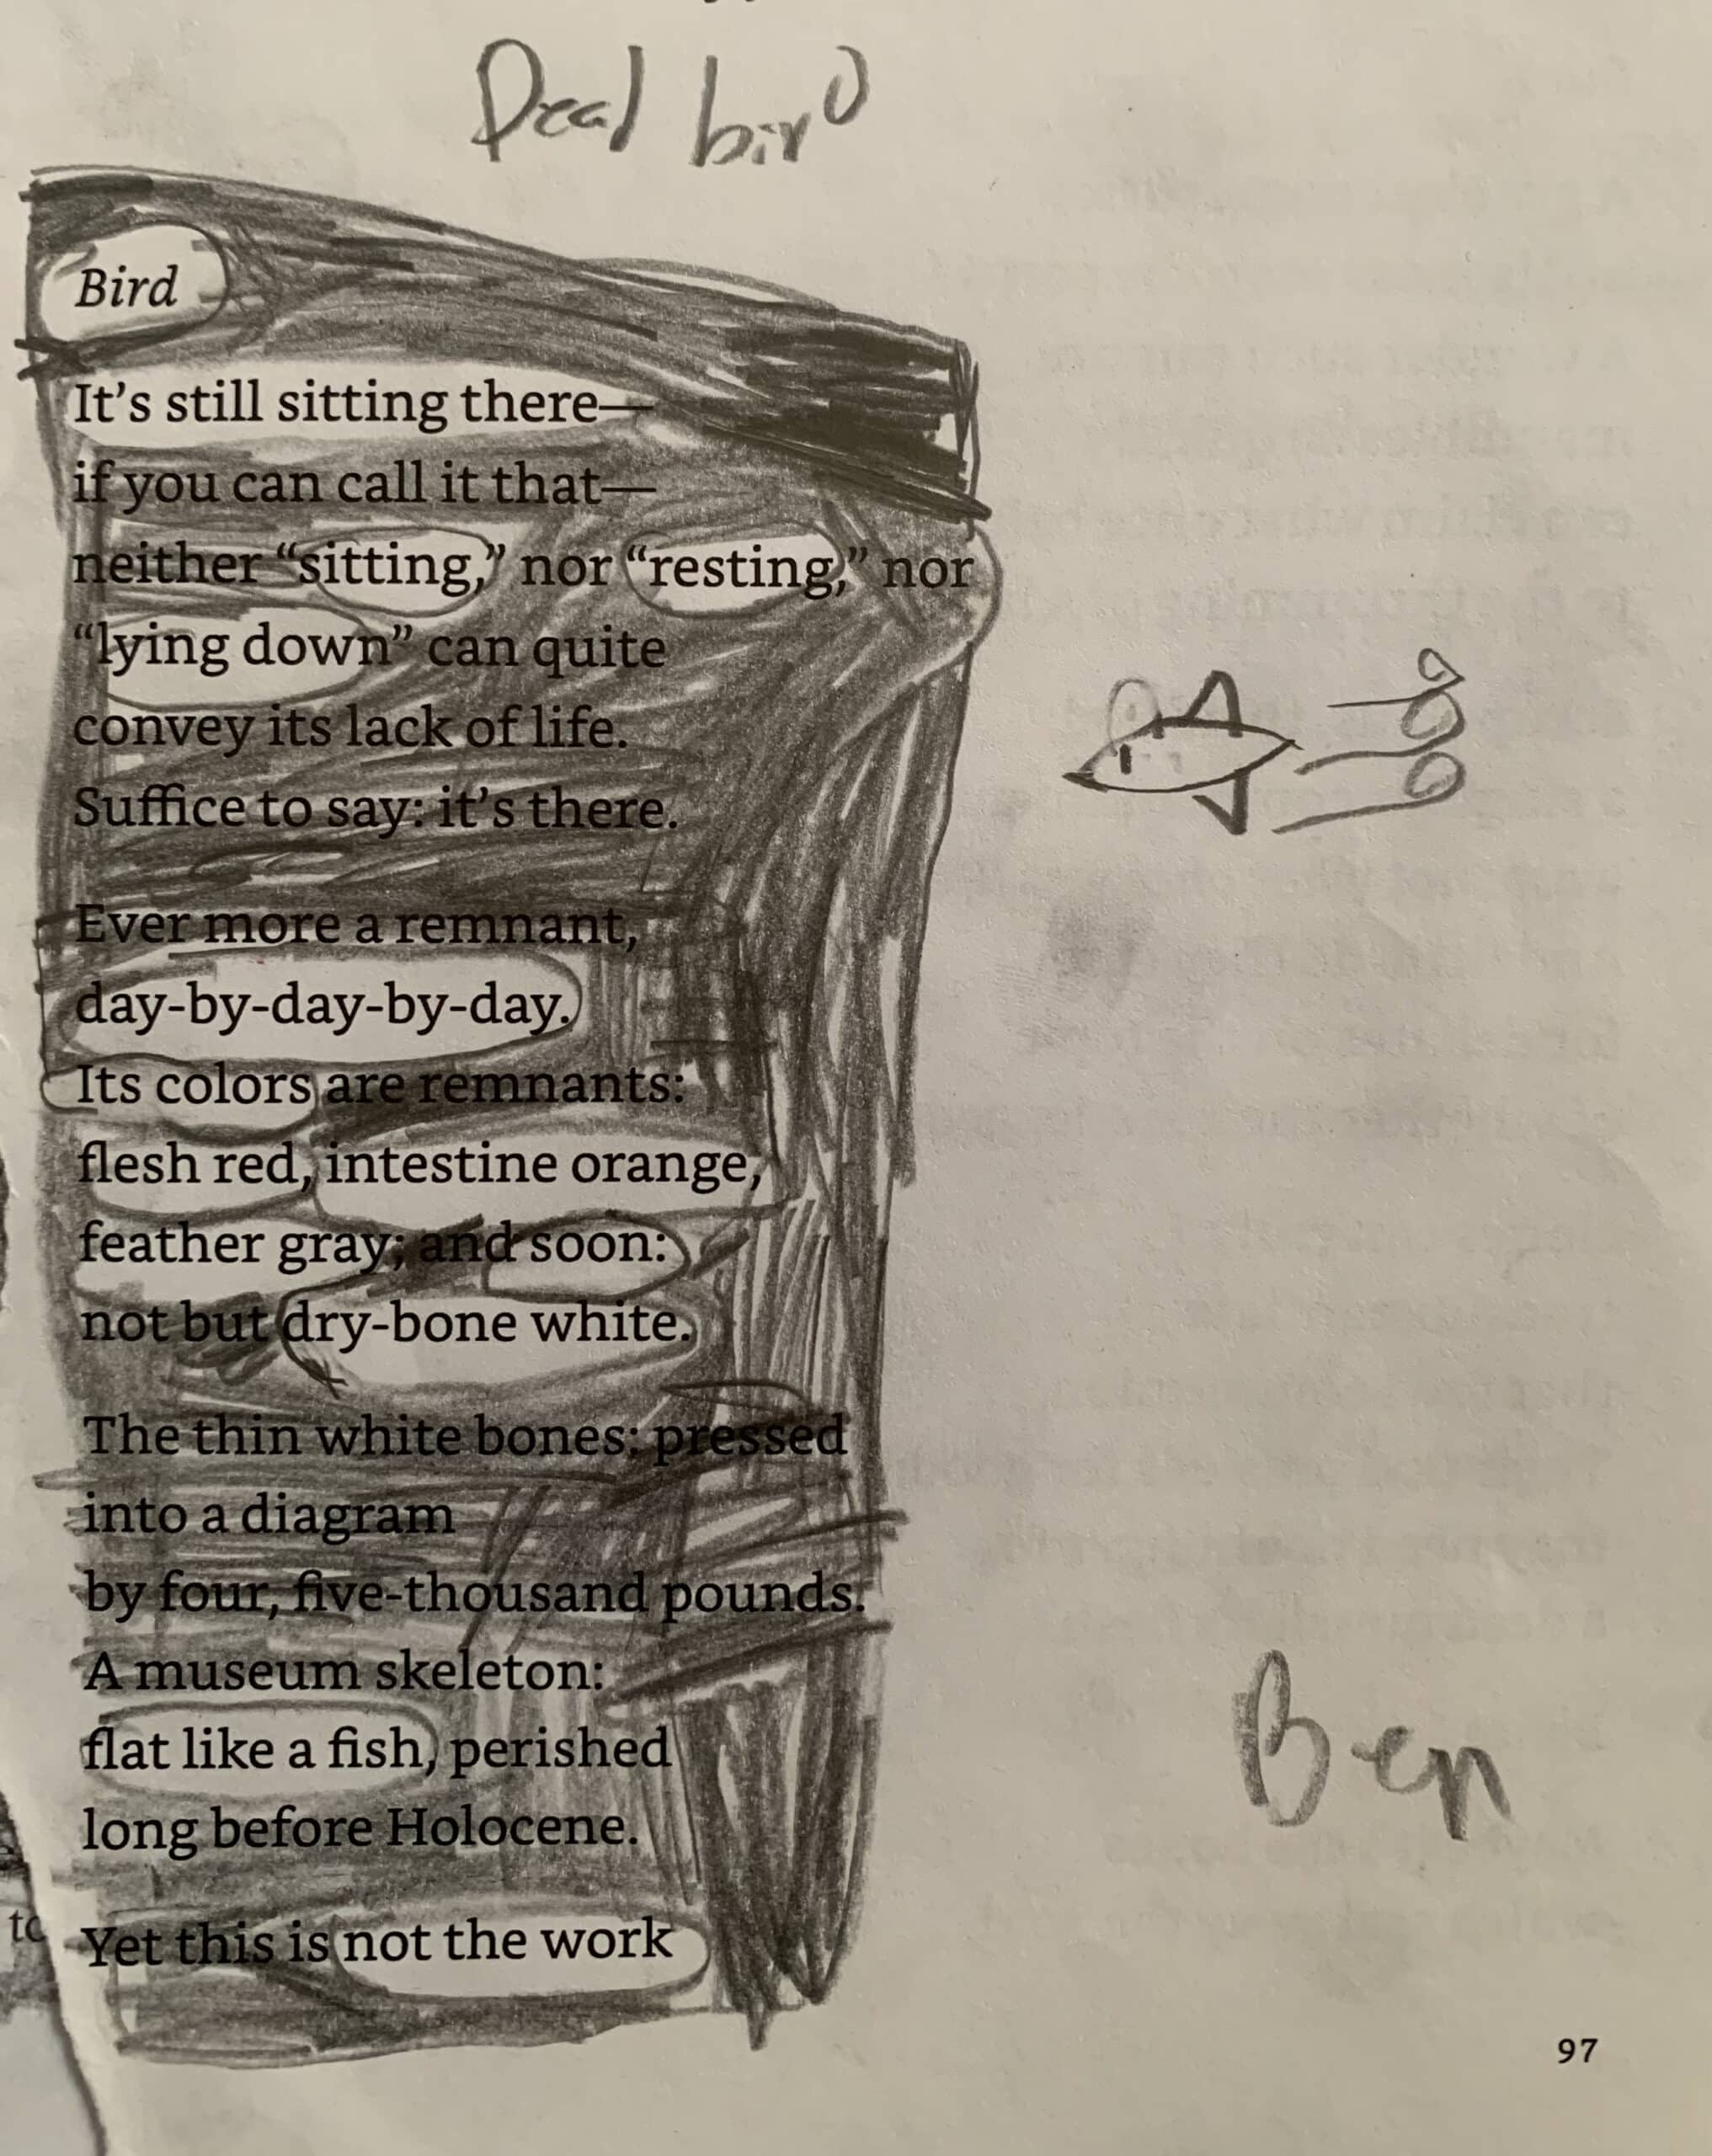 Dead bird
Bird
It's still sitting there—
if you can call it that—
neither “sitting,” nor “resting,” nor
“lying down” can quite
convey its lack of life.
Suffice to say: it's there.
Ever more a remnant,
day-by-day-by-day.
Its colors are remnants:
flesh red, intestine orange,
feather gray; and soon:
not but dry-bone white.
The thin white bones: pressed
into a diagram
by four, five-thousand pounds.
A museum skeleton:
flat like a fish, perished
long before Holocene.
to
Yet this is not the work
Ben
97